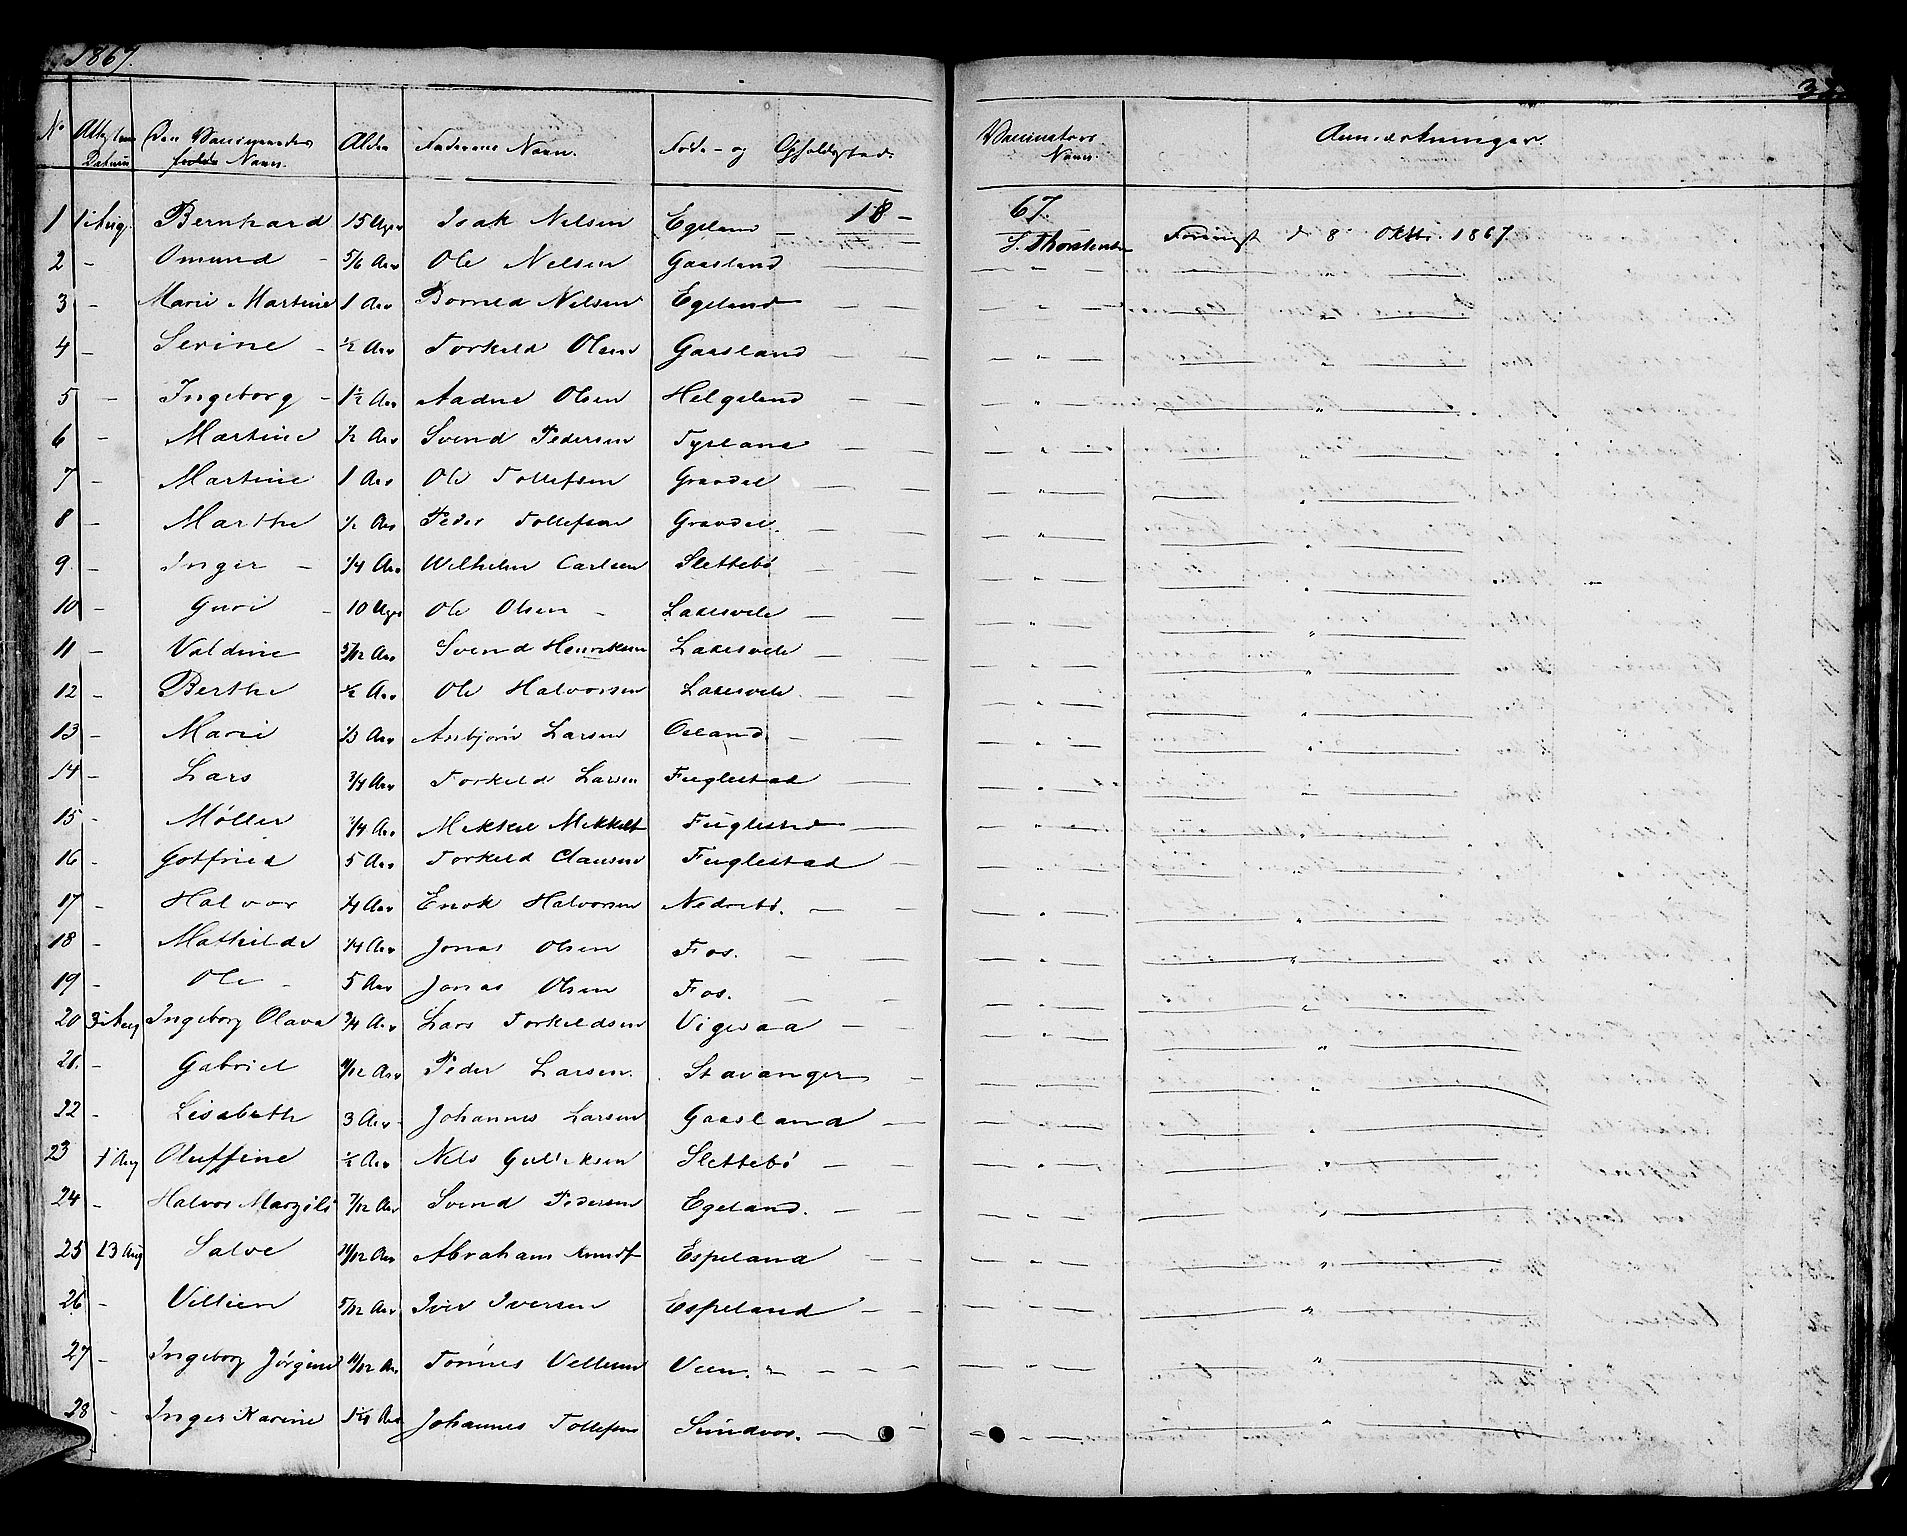 1867.
No Datum Den Vaccineredes Navn. Alder Faderens Navn. Føde- og Opholdsted. Vaccinators Navn. Anmærkninger.
18 - 67.
1 1 Aug. Bernhard 15 Uger Isak Nilsen Egeland — L. Thorstensen d 8 Oktbr. 1867.
2 - Omund - 5/6 Aar Ole Nilsen Gaasland — — " — — " —
3 - Marie Martine 1 Aar Nilsen Egeland — — " — — " —
4 - Serine - 1/2 Aar Torkild Olsen Gaasland — — " — — " —
5 - Ingeborg - 1 1/2 Aar Aadne Olsen Helgeland — — " — — " —
6 - Martine 1/2 Aar Svend Pedersen — — " — — " —
7 - Martine 1 Aar Ole Tollefsen Gravdal — — " — — " —
8 - Marthe 1/2 Aar Peder Tollefsen Gravdal. — — " — — " —
9 - Inger - 1/4 Aar Wilhelm Carlsen Slettebø — — " — — " —
10 - Guri - 10 Uger Ole Olsen - — — " — — " —
11 - Valdine 5/12 Aar Svend Henriksen — — " — — " —
12 - Berthe 1/2 Aar Ole Halvorsen — — " — — " —
13 - Marie 1/3 Aar Asbjørn Larsen — — " — — " —
14 - Lars 3/4 Aar Torkild Larsen Fuglestad — — " — — " —
15 - Møller 3/4 Aar Mikkel Mikkels Fuglestad — — " — — " —
16 - Gotfried 5 Aar Torkild Clausen Fuglestad — — " — — " —
17 - Halvor 1/4 Aar Enok Halvorsen Nedrebø. — — " — — " —
18 - Mathilde 1/4 Aar Jonas Olsen Fos. — — " — — " —
19 - Ole - 5 Aar Jonas Olsen Fos. — — " — — " —
20 3 Aug Ingeborg Olava 3/4 Aar Lars Torkildsen Vigesaa — — " — — " —
21. - Gabriel Aar Peder Larsen. Stavanger — — " — — " —
22 - Lisabeth 3 Aar Johannes Larsen Gaasland — — " — — " —
23 1 Aug Oluffine 1/2 Aar Nils Gulleksen Slettebø — — " — — " —
24 - Halvor 7/12 Aar Svend Pedersen Egeland. — — " — — " —
25 13 Aug Salve Aar Abraham Knudt Espeland — — " — — " —
26 - Villien 5/12 Aar Iver Iversen Espeland — — " — — " —
27 - Ingeborg Jørgine Aar Tønnes Villiun Veen. — — " — — " —
28 - Inger Karine 1 1/4 Aar Johannes Tollefsen Sundvor. — — " — — " —